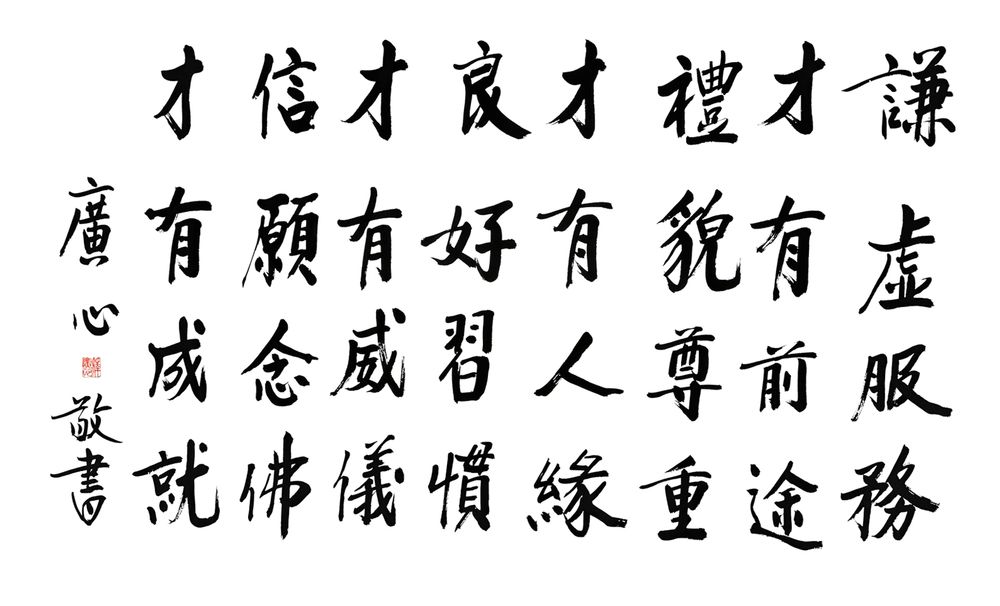 謙虛服務
才有前途
禮貌尊重
才有人緣
良好習慣
才有威儀
信願念佛
才有成就
廣心敬書